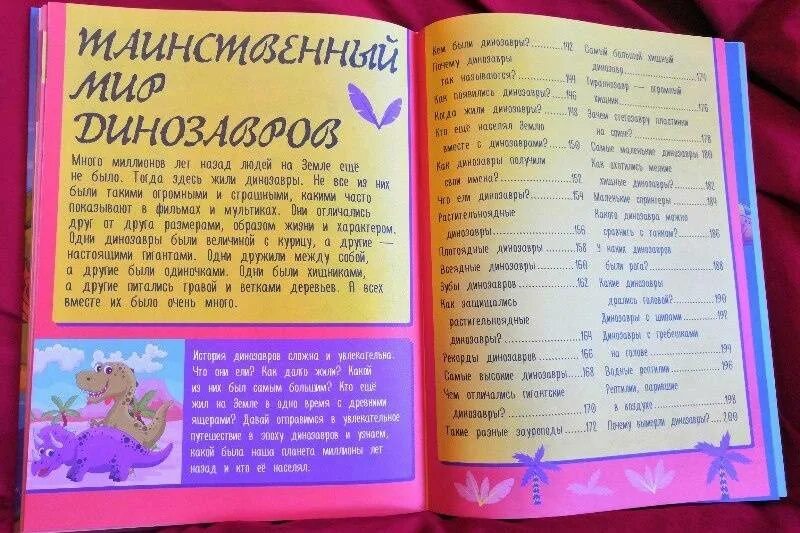 ТАИНСТВЕННЫЙ
МИР
ДИНОЗАВРОВ
Много миллионов лет назад людей на Земле ещё
не было. Тогда здесь жили динозавры. Не все из них
были такими огромными и страшными, какими часто
показывают в фильмах и мультиках. Они отличались
друг от друга размерами, образом жизни и характером.
Одни динозавры были величиной с курицу, а другие —
настоящими гигантами. Одни дружили между собой,
а другие были одиночками. Одни были хищниками,
а другие питались травой и ветками деревьев. А всех
вместе их было очень много.
История динозавров сложна и увлекательна.
Что они ели? Как долго жили? Какой
из них был самым большим? Кто ещё
жил на Земле в одно время с древними
ящерами? Давай отправимся в увлекательное
путешествие в эпоху динозавров и узнаем,
какой была наша планета миллионы лет
назад и кто её населял.
Кем были динозавры?..........142
Почему динозавры
так называются?..........144
Как появились динозавры?..........146
Когда жили динозавры?..........148
Кто ещё населял Землю
вместе с динозаврами?..........150
Как динозавры получили
свои имена?..........152
Что ели динозавры?..........154
Растительноядные
динозавры..........156
Плотоядные динозавры..........158
Всеядные динозавры..........160
Зубы динозавров..........162
Как защищались
растительноядные
динозавры?..........164
Рекорды динозавров..........166
Самые высокие динозавры..........168
Чем отличались гигантские
динозавры?..........170
Такие разные зауроподы..........172
Самый большой хищный
динозавр..........174
Тираннозавр — огромный
хищник..........176
Зачем стегозавру пластинки
на спине?..........178
Самые маленькие динозавры 180
Как охотились мелкие
хищные динозавры?..........182
Маленькие спринтеры..........184
Какого динозавра можно
сравнить с танком?..........186
У каких динозавров
были рога?..........188
Какие динозавры
дрались головой?..........190
Динозавры с шипами..........192
Динозавры с гребешками
на голове..........194
Водные рептилии..........196
Рептилии, парившие
в воздухе..........198
Почему вымерли динозавры?..........200